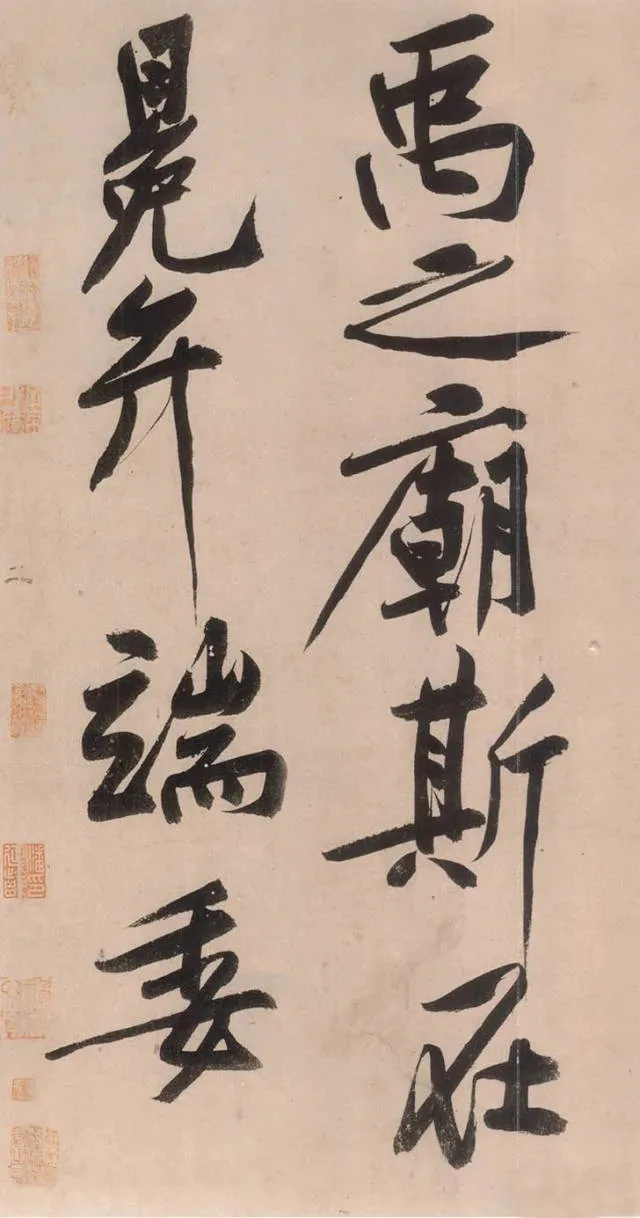 禹之廟斯在
冕弁端委
二